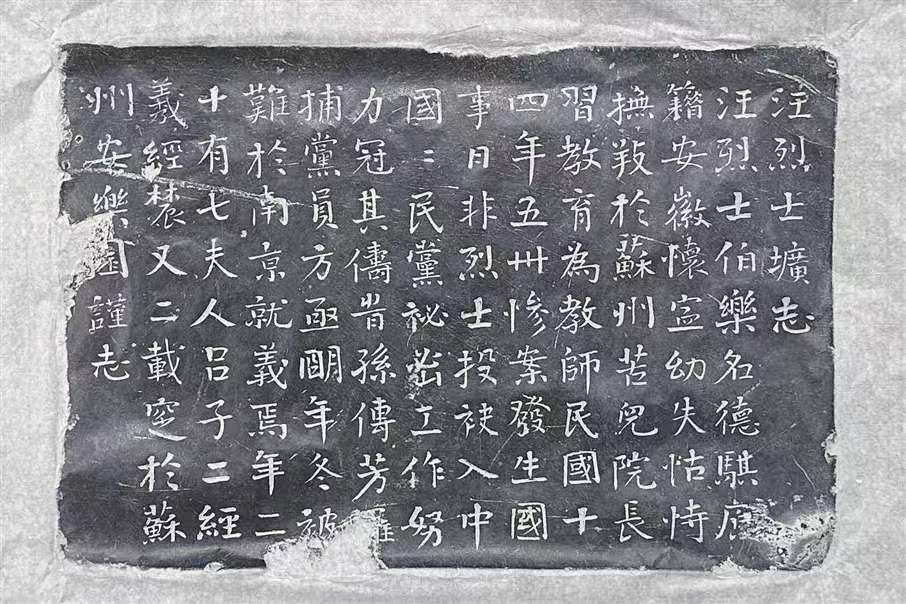 汪烈士壙志
汪烈士伯樂名德騏原
籍安徽懷寍幼失怙恃
撫教於蘇州苦兒院長
習教育為教師民國十
四年五卅慘案發生國
事日非烈士投袂入中
國〻民黨祕密工作努
力冠其儔旹孫傳芳羅
捕黨員方亟朙年冬被
難於南京就義焉年二
十有七夫人呂子二經
義經農又二載窆於蘇
州安樂園謹志